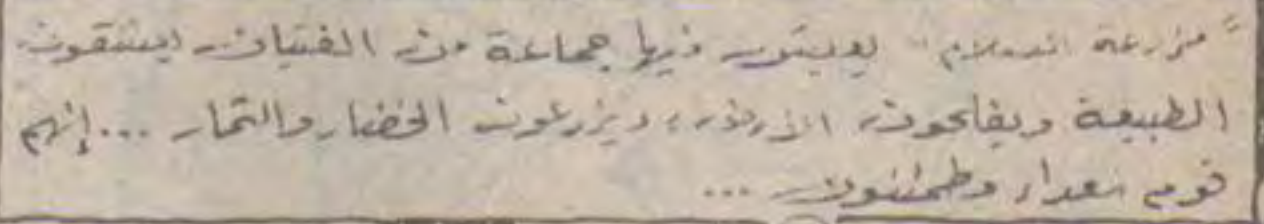 "مزرعة السلام" يعيش فيها جماعة من الفتيان يعشقون
الطبيعة ويفلحون الأرض، ويزرعون الخضار والثمار ... إنهم
قوم سعداء ومطمئنون ...